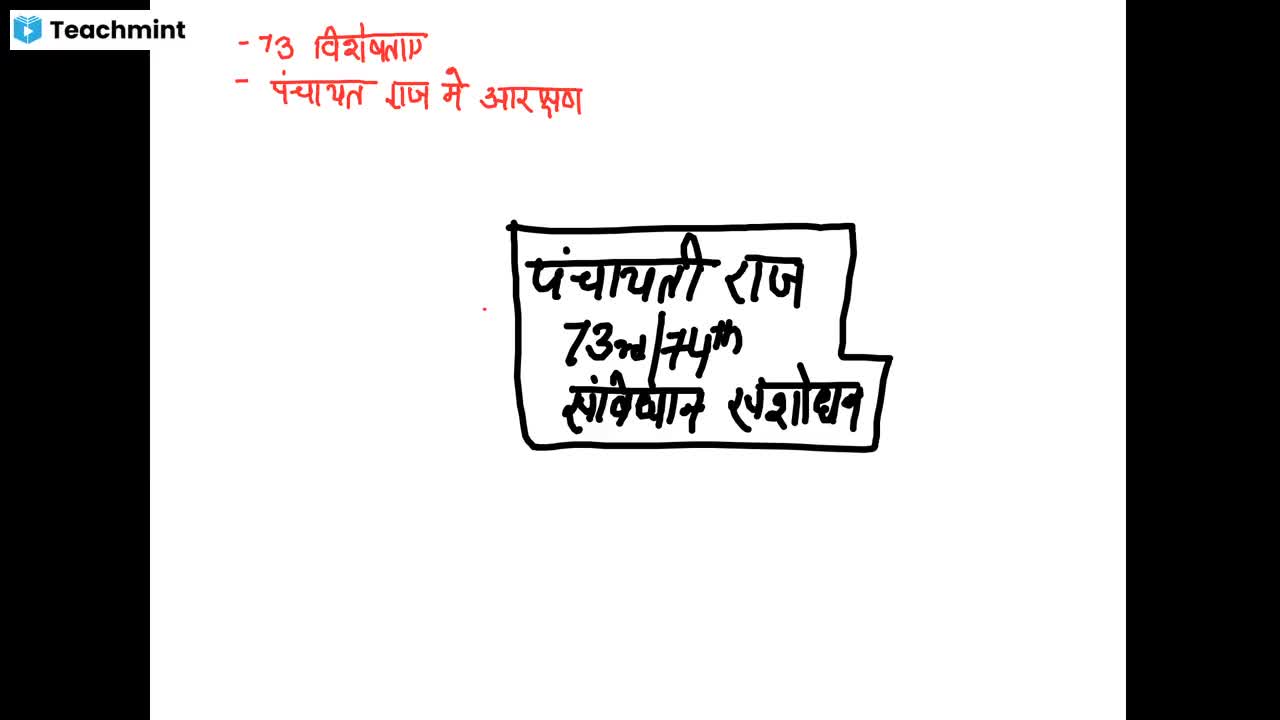 Teachmint
- 73 विशेषताए
- पंचायत राज मे आरक्षण
पंचायती राज
73rd/74th
संविधान संशोधन